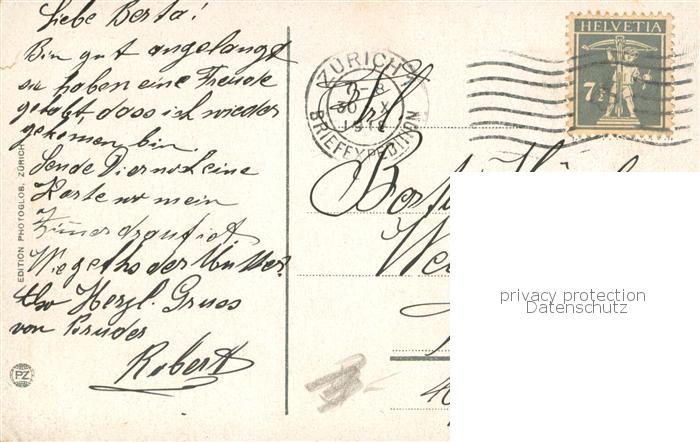 Liebe Berta!
Bin gut angelangt
sie haben eine Freude
gehabt dass ich wieder
gekommen bin.
Sende Dir noch eine
Karte wo mein
Zimmer drauf ist
Wie geths der Mutter
Herzl. Gruss
von Bruder
Robert
EDITION PHOTOGLOB, ZÜRICH
PZ
ZÜRICH
30 X
BRIEFEXPEDITION
HELVETIA
7½
Frl.
privacy protection
Datenschutz